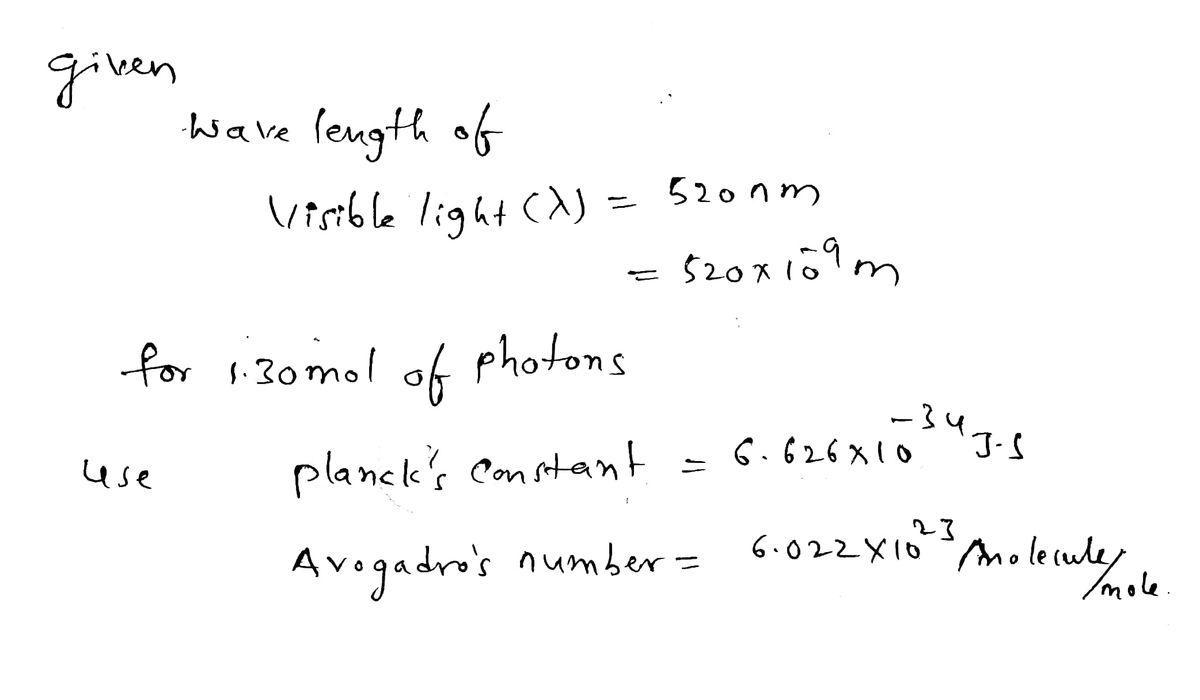 given
wave length of
visible light (λ) = 520 nm
= 520 × 10⁻⁹ m
for 1.30 mol of photons
use planck's constant = 6.626 × 10⁻³⁴ J·s
Avogadro's number = 6.022 × 10²³ molecules/mole.